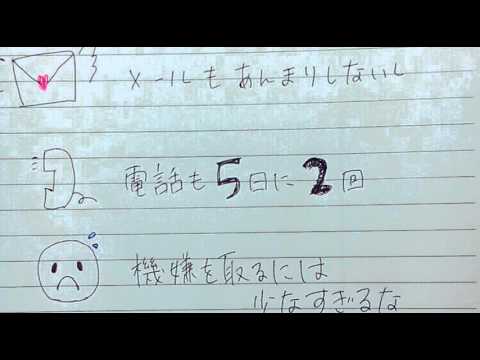 メールもあんまりしないし
電話も5日に2回
機嫌を取るには
少なすぎるな